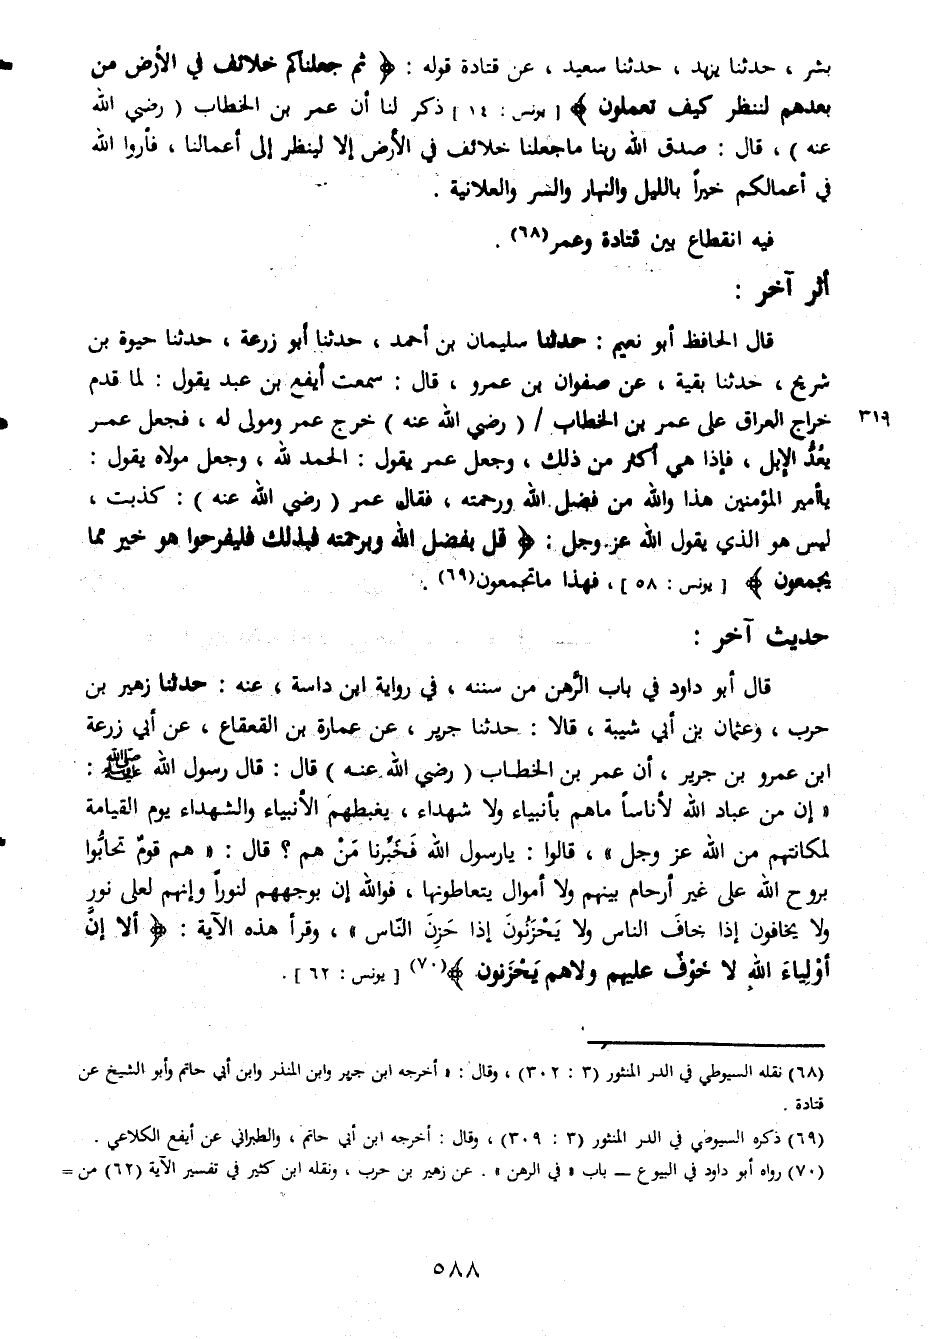 بشر ، حدثنا يزيد ، حدثنا سعيد ، عن قتادة قوله : ﴿ ثم جعلناكم خلائف في الأرض من
بعدهم لننظر كيف تعملون ﴾ [ يونس : ١٤ ] ذكر لنا أن عمر بن الخطاب ( رضي الله
عنه ) ، قال : صدق الله ربنا ماجعلنا خلائف في الأرض إلا لينظر إلى أعمالنا ، فأروا الله
في أعمالكم خيراً بالليل والنهار والسر والعلانية .
فيه انقطاع بين قتادة وعمر(٦٨) .
أثر آخر :
قال الحافظ أبو نعيم : حدثنا سليمان بن أحمد ، حدثنا أبو زرعة ، حدثنا حيوة بن
شريح ، حدثنا بقية ، عن صفوان بن عمرو ، قال : سمعت أيفع بن عبد يقول : لما قدم
خراج العراق على عمر بن الخطاب / ( رضي الله عنه ) خرج عمر ومولى له ، فجعل عمر ٣١٩
يعُدُّ الإبل ، فإذا هي أكثر من ذلك ، وجعل عمر يقول : الحمد لله ، وجعل مولاه يقول :
ياأمير المؤمنين هذا والله من فضل الله ورحمته ، فقال عمر ( رضي الله عنه ) : كذبت ،
ليس هو الذي يقول الله عز وجل : ﴿ قل بفضل الله وبرحمته فبذلك فليفرحوا هو خير مما
يجمعون ﴾ [ يونس : ٥٨ ] ، فهذا ماتجمعون(٦٩) .
حديث آخر :
قال أبو داود في باب الرَّهن من سننه ، في رواية ابن داسة ، عنه : حدثنا زهير بن
حرب ، وعثمان بن أبي شيبة ، قالا : حدثنا جرير ، عن عمارة بن القعقاع ، عن أبي زرعة
ابن عمرو بن جرير ، أن عمر بن الخطاب ( رضي الله عنه ) قال : قال رسول الله ﷺ :
« إن من عباد الله لأناساً ماهم بأنبياء ولا شهداء ، يغبطهم الأنبياء والشهداء يوم القيامة
لمكانتهم من الله عز وجل » ، قالوا : يارسول الله فَخَبِّرنا مَنْ هم ؟ قال : « هم قومٌ تحابُّوا
بروح الله على غير أرحام بينهم ولا أموال يتعاطونها ، فوالله إن بوجههم لنوراً وإنهم لعلى نور
ولا يخافون إذا خافَ الناس ولا يَحْزَنُونَ إذا حَزِنَ النّاس » ، وقرأ هذه الآية : ﴿ ألا إنَّ
أوْلِياءَ اللهِ لا خَوْفٌ عليهم ولاهم يَحْزَنون ﴾(٧٠) [ يونس : ٦٢ ] .
(٦٨) نقله السيوطي في الدر المنثور (٣ : ٣٠٢) ، وقال : « أخرجه ابن جرير وابن المنذر وابن أبي حاتم وأبو الشيخ عن
قتادة .
(٦٩) ذكره السيوطي في الدر المنثور (٣ : ٣٠٩) ، وقال : أخرجه ابن أبي حاتم ، والطبراني عن أيفع الكلاعي .
(٧٠) رواه أبو داود في البيوع ـ باب « في الرهن » . عن زهير بن حرب ، ونقله ابن كثير في تفسير الآية (٦٢) من =
٥٨٨